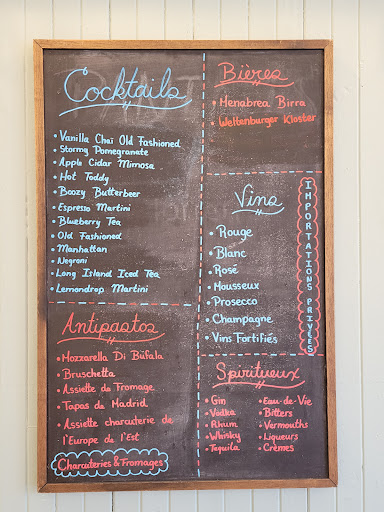 Cocktails
• Vanilla Chai Old Fashioned
• Stormy Pomegranate
• Apple Cidar Mimosa
• Hot Toddy
• Boozy Butterbeer
• Espresso Martini
• Blueberry Tea
• Old Fashioned
• Manhattan
• Negroni
• Long Island Iced Tea
• Lemondrop Martini
Antipastos
• Mozzarella Di Bufala
• Bruschetta
• Assiette da Fromage
• Tapas de Madrid
• Assiette charcuterie de
l'Europe de l'Est
Charcuteries & Fromages
Bières
• Menabrea Birra
• Weltenburger Kloster
Vins
• Rouge
• Blanc
• Rosé
• Mousseux
• Prosecco
• Champagne
• Vins Fortifiés
IMPORTATIONS PRIVÉES
Spiritueux
• Gin
• Vodka
• Rhum
• Whisky
• Tequila
• Eau-de-Vie
• Bitters
• Vermouths
• Liqueurs
• Crèmes